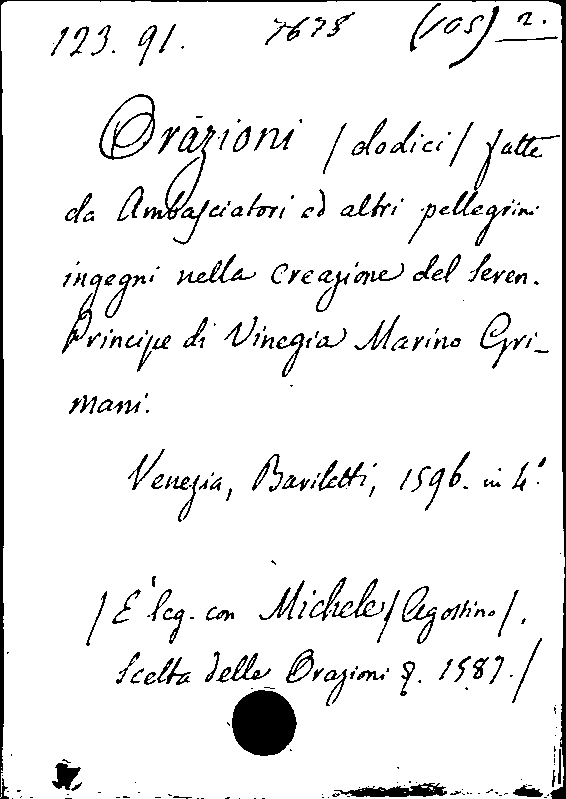 123. 91. 7678 (105) 2.
Orazioni / dodici / fatte
da Ambasciatori ed altri pellegrini
ingegni nella Creazione del Seren.
Principe di Vinegia Marino Gri-
mani.
Venezia, Bariletti, 1596. in 4°.
/ È leg. con Michele / Agostino /.
Scelta delle Orazioni 1587. /